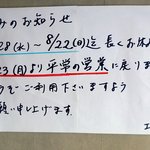 みのお知らせ
28(水)~8/22(日)迄 長くお休み
23(月)より平常の営業に戻りま
をご利用下さいますよう
願い申し上げます。